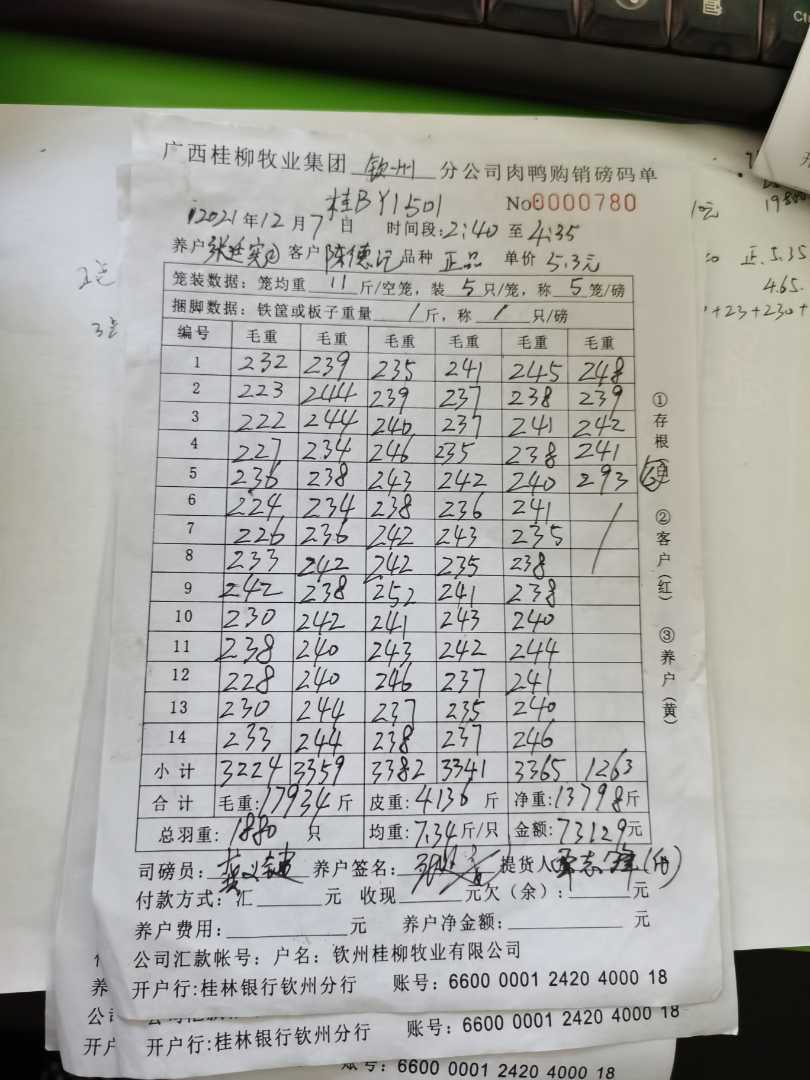 广西桂柳牧业集团 钦州 分公司肉鸭购销磅码单
桂BY1501 No 0000780
2021年12月7日 时间段:2:40 至 4:35
养户 客户 陈德记 品种 正品 单价 5.3元
笼装数据: 笼均重 11 斤/空笼, 装 5 只/笼, 称 5 笼/磅
捆脚数据: 铁筐或板子重量 / 斤, 称 / 只/磅
编号 毛重 毛重 毛重 毛重 毛重 毛重
1 232 239 235 241 245 248
2 223 244 239 237 238 239
3 222 244 240 237 241 242
4 227 234 246 235 238 241
5 236 238 243 242 240 293
6 224 234 238 236 241 /
7 226 236 242 243 235
8 233 242 242 235 238
9 242 238 252 241 238
10 230 242 241 243 240
11 238 240 243 242 244
12 228 240 246 237 241
13 230 244 237 235 240
14 233 244 238 237 246
小计 3224 3359 3382 3341 3365 1263
合计 毛重:17934斤 皮重:4136 斤 净重:13798斤
总羽重: 1880 只 均重:7.34斤/只 金额:73129元
司磅员: 养户签名: 提货人
付款方式:汇 元 收现 元欠(余): 元
养户费用: 元 养户净金额: 元
公司汇款帐号: 户名: 钦州桂柳牧业有限公司
开户行:桂林银行钦州分行 账号: 6600 0001 2420 4000 18
①存根
②客户(红)
③养户(黄)
开户行:桂林银行钦州分行 账号: 6600 0001 2420 4000 18
账号: 6600 0001 2420 4000 18
养
公司
开户
正.5.35
4.65
+23+230+